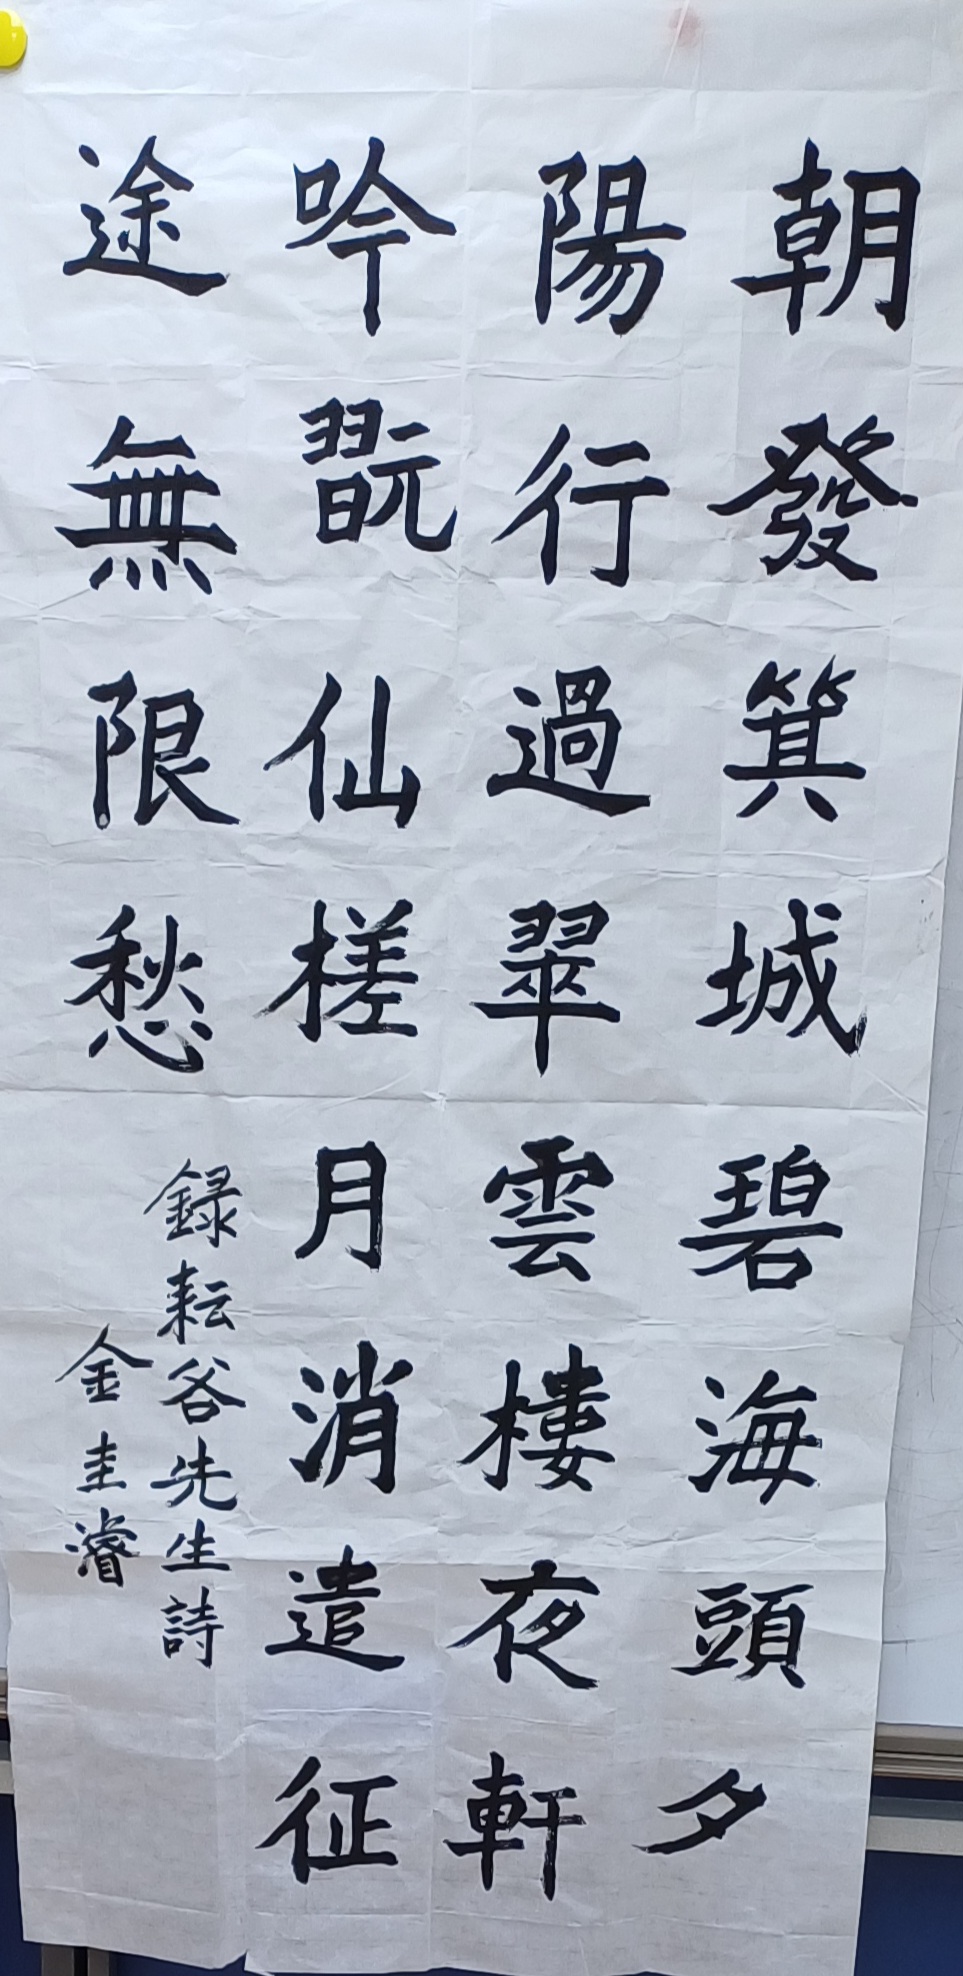 朝發箕城碧海頭夕
陽行過翠雲樓夜軒
吟翫仙槎月消遣征
途無限愁
録耘谷先生詩
金圭濬